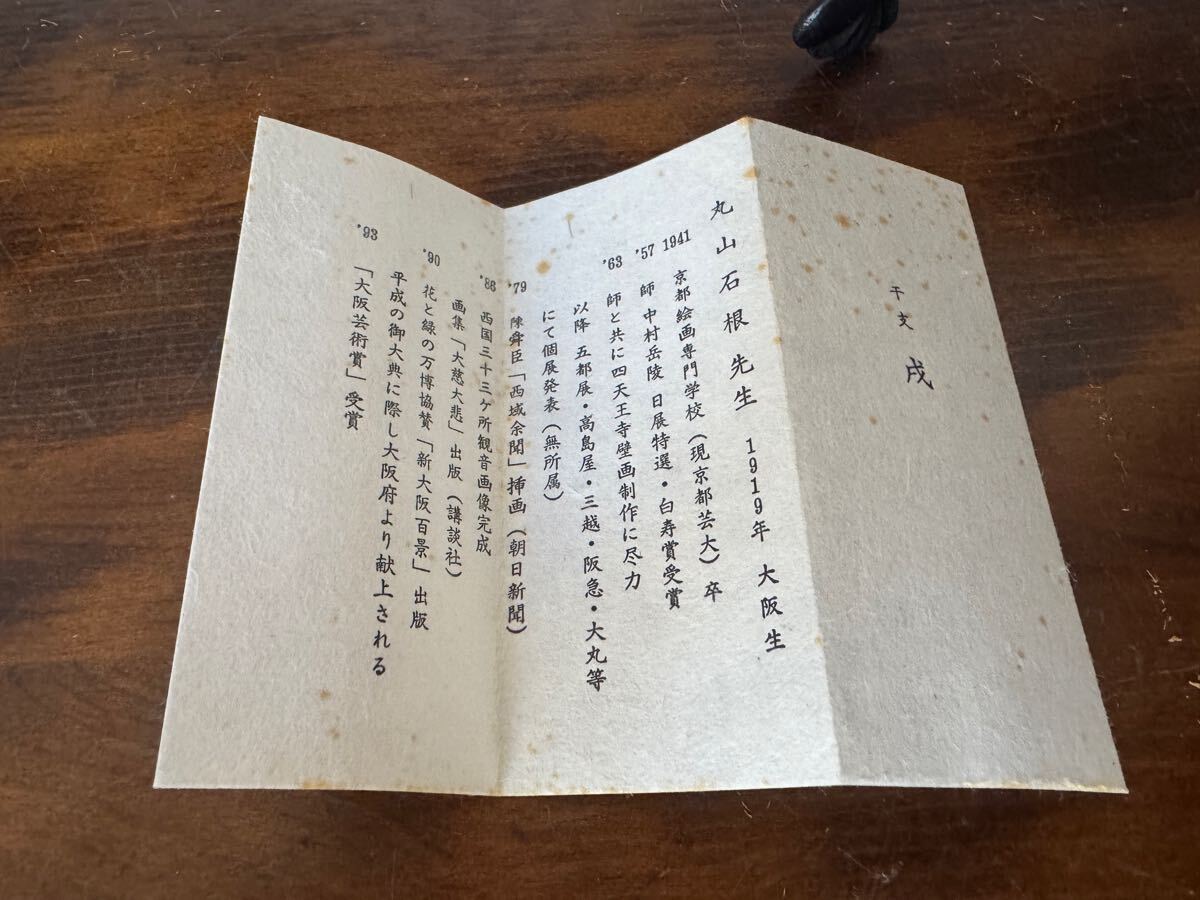 干支 戌
丸山石根先生 1919年 大阪生
1941 京都絵画専門学校(現京都芸大)卒
'57 師 中村岳陵 日展特選・白寿賞受賞
'63 師と共に四天王寺壁画制作に尽力
以降 五都展・高島屋・三越・阪急・大丸等
にて個展発表(無所属)
'79 陳舜臣「西域余聞」挿画(朝日新聞)
'88 西国三十三ケ所観音画像完成
画集「大慈大悲」出版(講談社)
'90 花と緑の万博協賛「新大阪百景」出版
平成の御大典に際し大阪府より献上される
'93 「大阪芸術賞」受賞